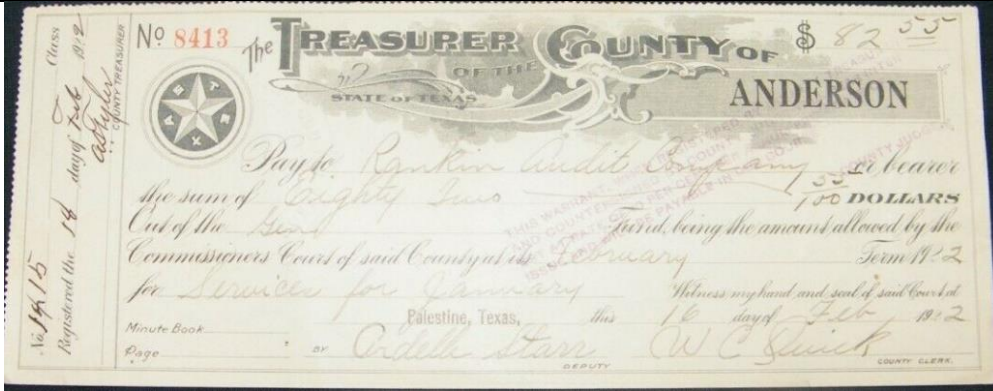 No 1815 Class
Registered the 18 day of Feb 1922
COUNTY TREASURER
No 8413 The TREASURER OF THE COUNTY OF $ 82 55
STATE OF TEXAS ANDERSON
TEXAS
Pay to Rankin Audit Company or bearer
the sum of Eighty Two 55/100 DOLLARS
Out of the Gen Fund, being the amount allowed by the
Commissioners Court of said County at its February Term 1922
for Services for January Witness my hand and seal of said Court at
Palestine, Texas, this 16 day of Feb 1922
Minute Book
Page BY Ardelle Starr DEPUTY W C Quick COUNTY CLERK.
THIS WARRANT
COUNTY JUDGE